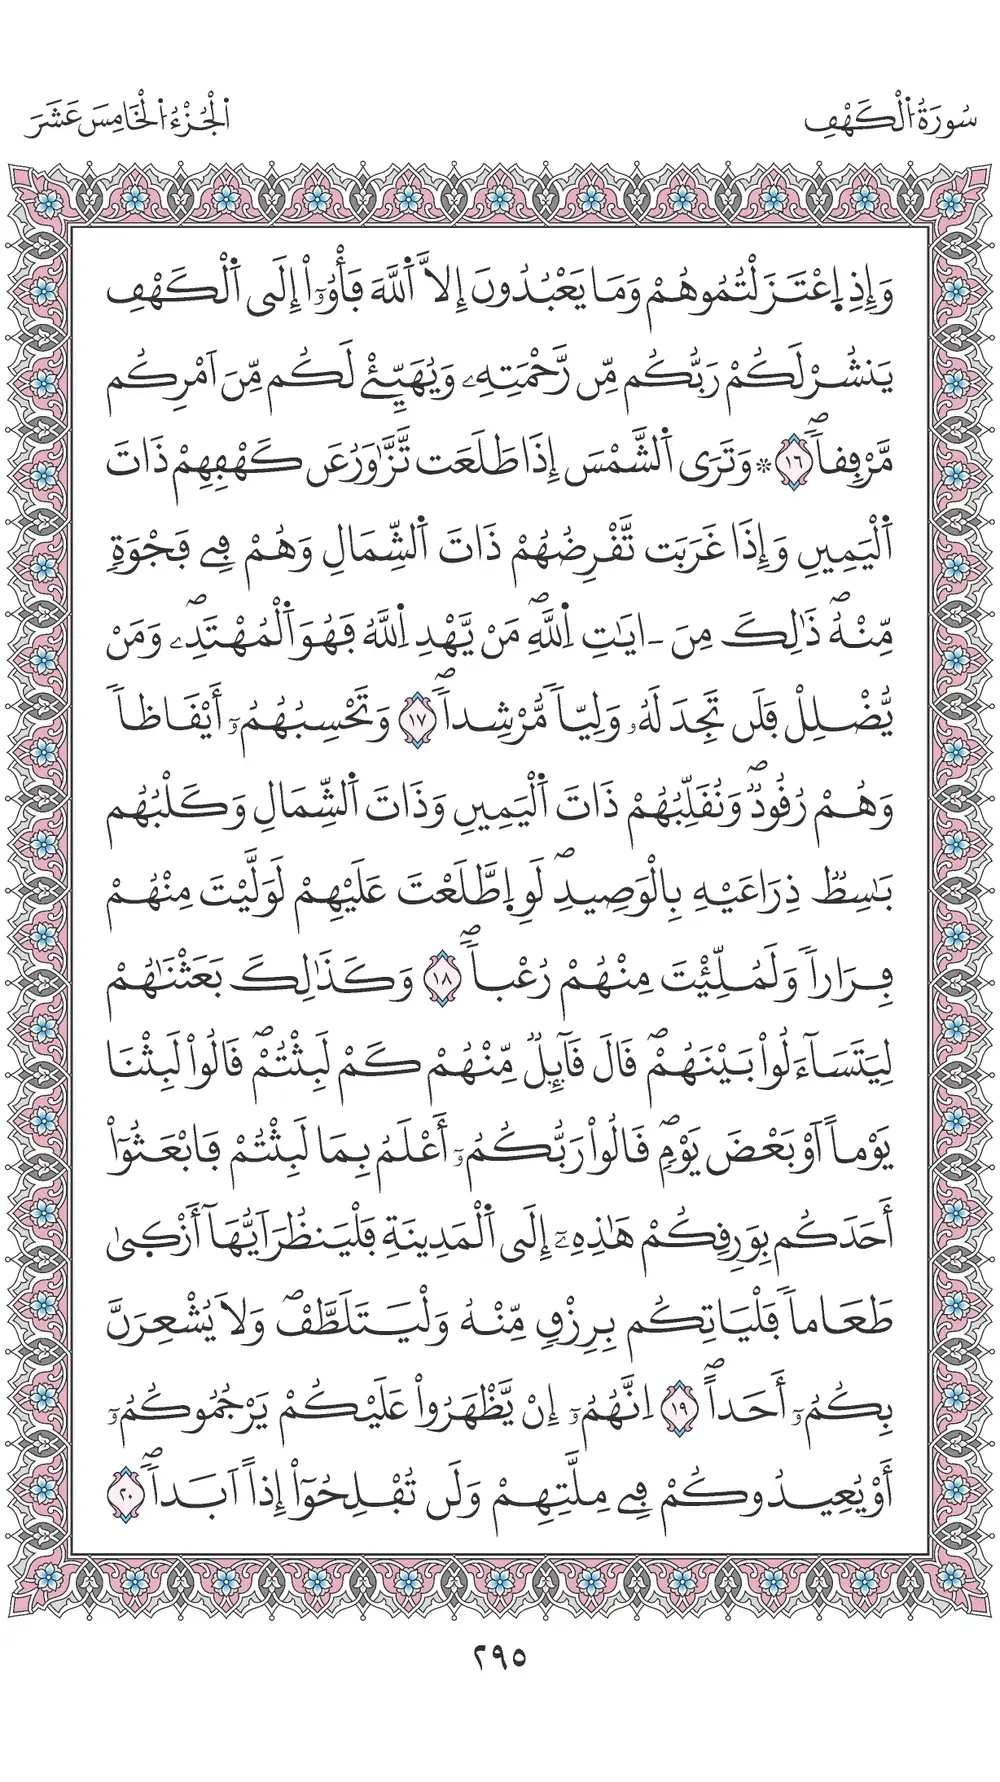 سُورَةُ اُ۬لْكَهْفِ
اَ۬لْجُزْءُ اُ۬لْخَامِسَ عَشَرَ
وَإِذِ إِ۪عْتَزَلْتُمُوهُمْ وَمَا يَعْبُدُونَ إِلَّا اَ۬للَّهَ فَأْوُۥٓاْ إِلَي اَ۬لْكَهْفِ
يَنشُرْ لَكُمْ رَبُّكُم مِّن رَّحْمَتِهِۦ وَيُهَيِّئْ لَكُم مِّنَ اَمْرِكُم
مَّرْفِقاًۖ ١٦ ۞ وَتَرَي اَ۬لشَّمْسَ إِذَا طَلَعَت تَّزَّٰوَرُ عَن كَهْفِهِمْ ذَاتَ
اَ۬لْيَمِينِ وَإِذَا غَرَبَت تَّقْرِضُهُمْ ذَاتَ اَ۬لشِّمَالِ وَهُمْ فِے فَجْوَةٖ
مِّنْهُۖ ذَٰلِكَ مِنَ ـ اٰيَٰتِ اِ۬للَّهِۖ مَنْ يَّهْدِ اِ۬للَّهُ فَهُوَ اَ۬لْمُهْتَدِۦۖ وَمَنْ
يُّضْلِلْ فَلَن تَجِدَ لَهُۥ وَلِيّاٗ مُّرْشِداٗۖ ١٧ وَتَحْسِبُهُمُۥٓ أَيْقَاظاٗ
وَهُمْ رُقُودٞۖ وَنُقَلِّبُهُمْ ذَاتَ اَ۬لْيَمِينِ وَذَاتَ اَ۬لشِّمَالِ وَكَلْبُهُم
بَٰسِطٞ ذِرَاعَيْهِ بِالْوَصِيدِۖ لَوِ إِ۪طَّلَعْتَ عَلَيْهِمْ لَوَلَّيْتَ مِنْهُمْ
فِرَاراٗ وَلَمُلِّئْتَ مِنْهُمْ رُعْباٗۖ ١٨ وَكَذَٰلِكَ بَعَثْنَٰهُمْ
لِيَتَسَآءَلُواْ بَيْنَهُمْۖ قَالَ قَآئِلٞ مِّنْهُمْ كَمْ لَبِثْتُمْۖ قَالُواْ لَبِثْنَا
يَوْماً اَوْ بَعْضَ يَوْمٖۖ قَالُواْ رَبُّكُمُۥٓ أَعْلَمُ بِمَا لَبِثْتُمْ فَابْعَثُوٓاْ
أَحَدَكُم بِوَرِقِكُمْ هَٰذِهِۦٓ إِلَي اَ۬لْمَدِينَةِ فَلْيَنظُرَ اَيُّهَآ أَزْكَىٰ
طَعَاماٗ فَلْيَاتِكُم بِرِزْقٖ مِّنْهُ وَلْيَتَلَطَّفْۖ وَلَا يُشْعِرَنَّ
بِكُمُۥٓ أَحَداًۖ ١٩ اِنَّهُمُۥٓ إِنْ يَّظْهَرُواْ عَلَيْكُمْ يَرْجُمُوكُمُۥٓ
أَوْ يُعِيدُوكُمْ فِے مِلَّتِهِمْ وَلَن تُفْلِحُوٓاْ إِذاً اَبَداٗۖ ٢٠
٢٩٥